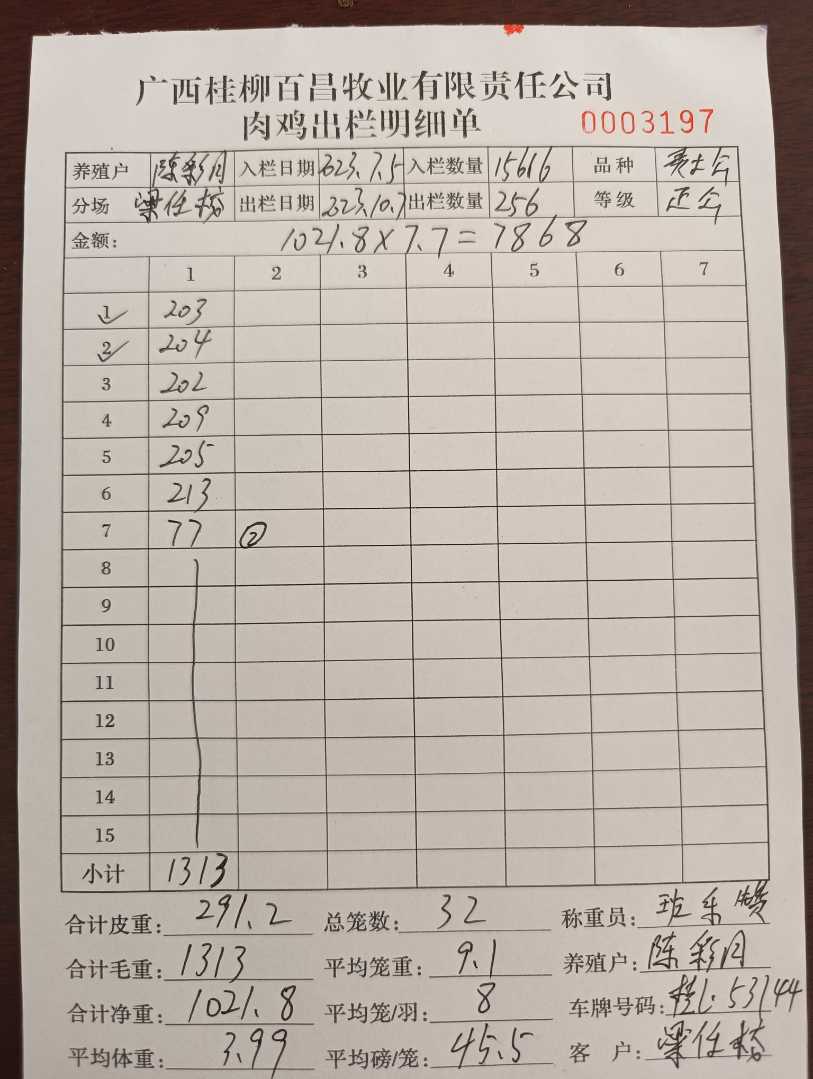 广西桂柳百昌牧业有限责任公司
肉鸡出栏明细单 0003197
养殖户 陈彩月 入栏日期 2023.7.5 入栏数量 15616 品种
分场 梁任榜 出栏日期 2023.10.7 出栏数量 256 等级 正公
金额: 1021.8×7.7=7868
1 2 3 4 5 6 7
1 203
2 204
3 202
4 209
5 205
6 213
7 77 ②
8
9
10
11
12
13
14
15
小计 1313
合计皮重: 291.2 总笼数: 32 称重员:
合计毛重: 1313 平均笼重: 9.1 养殖户: 陈彩月
合计净重: 1021.8 平均笼/羽: 8 车牌号码: 桂L·53144
平均体重: 3.99 平均磅/笼: 45.5 客户: 梁任榜